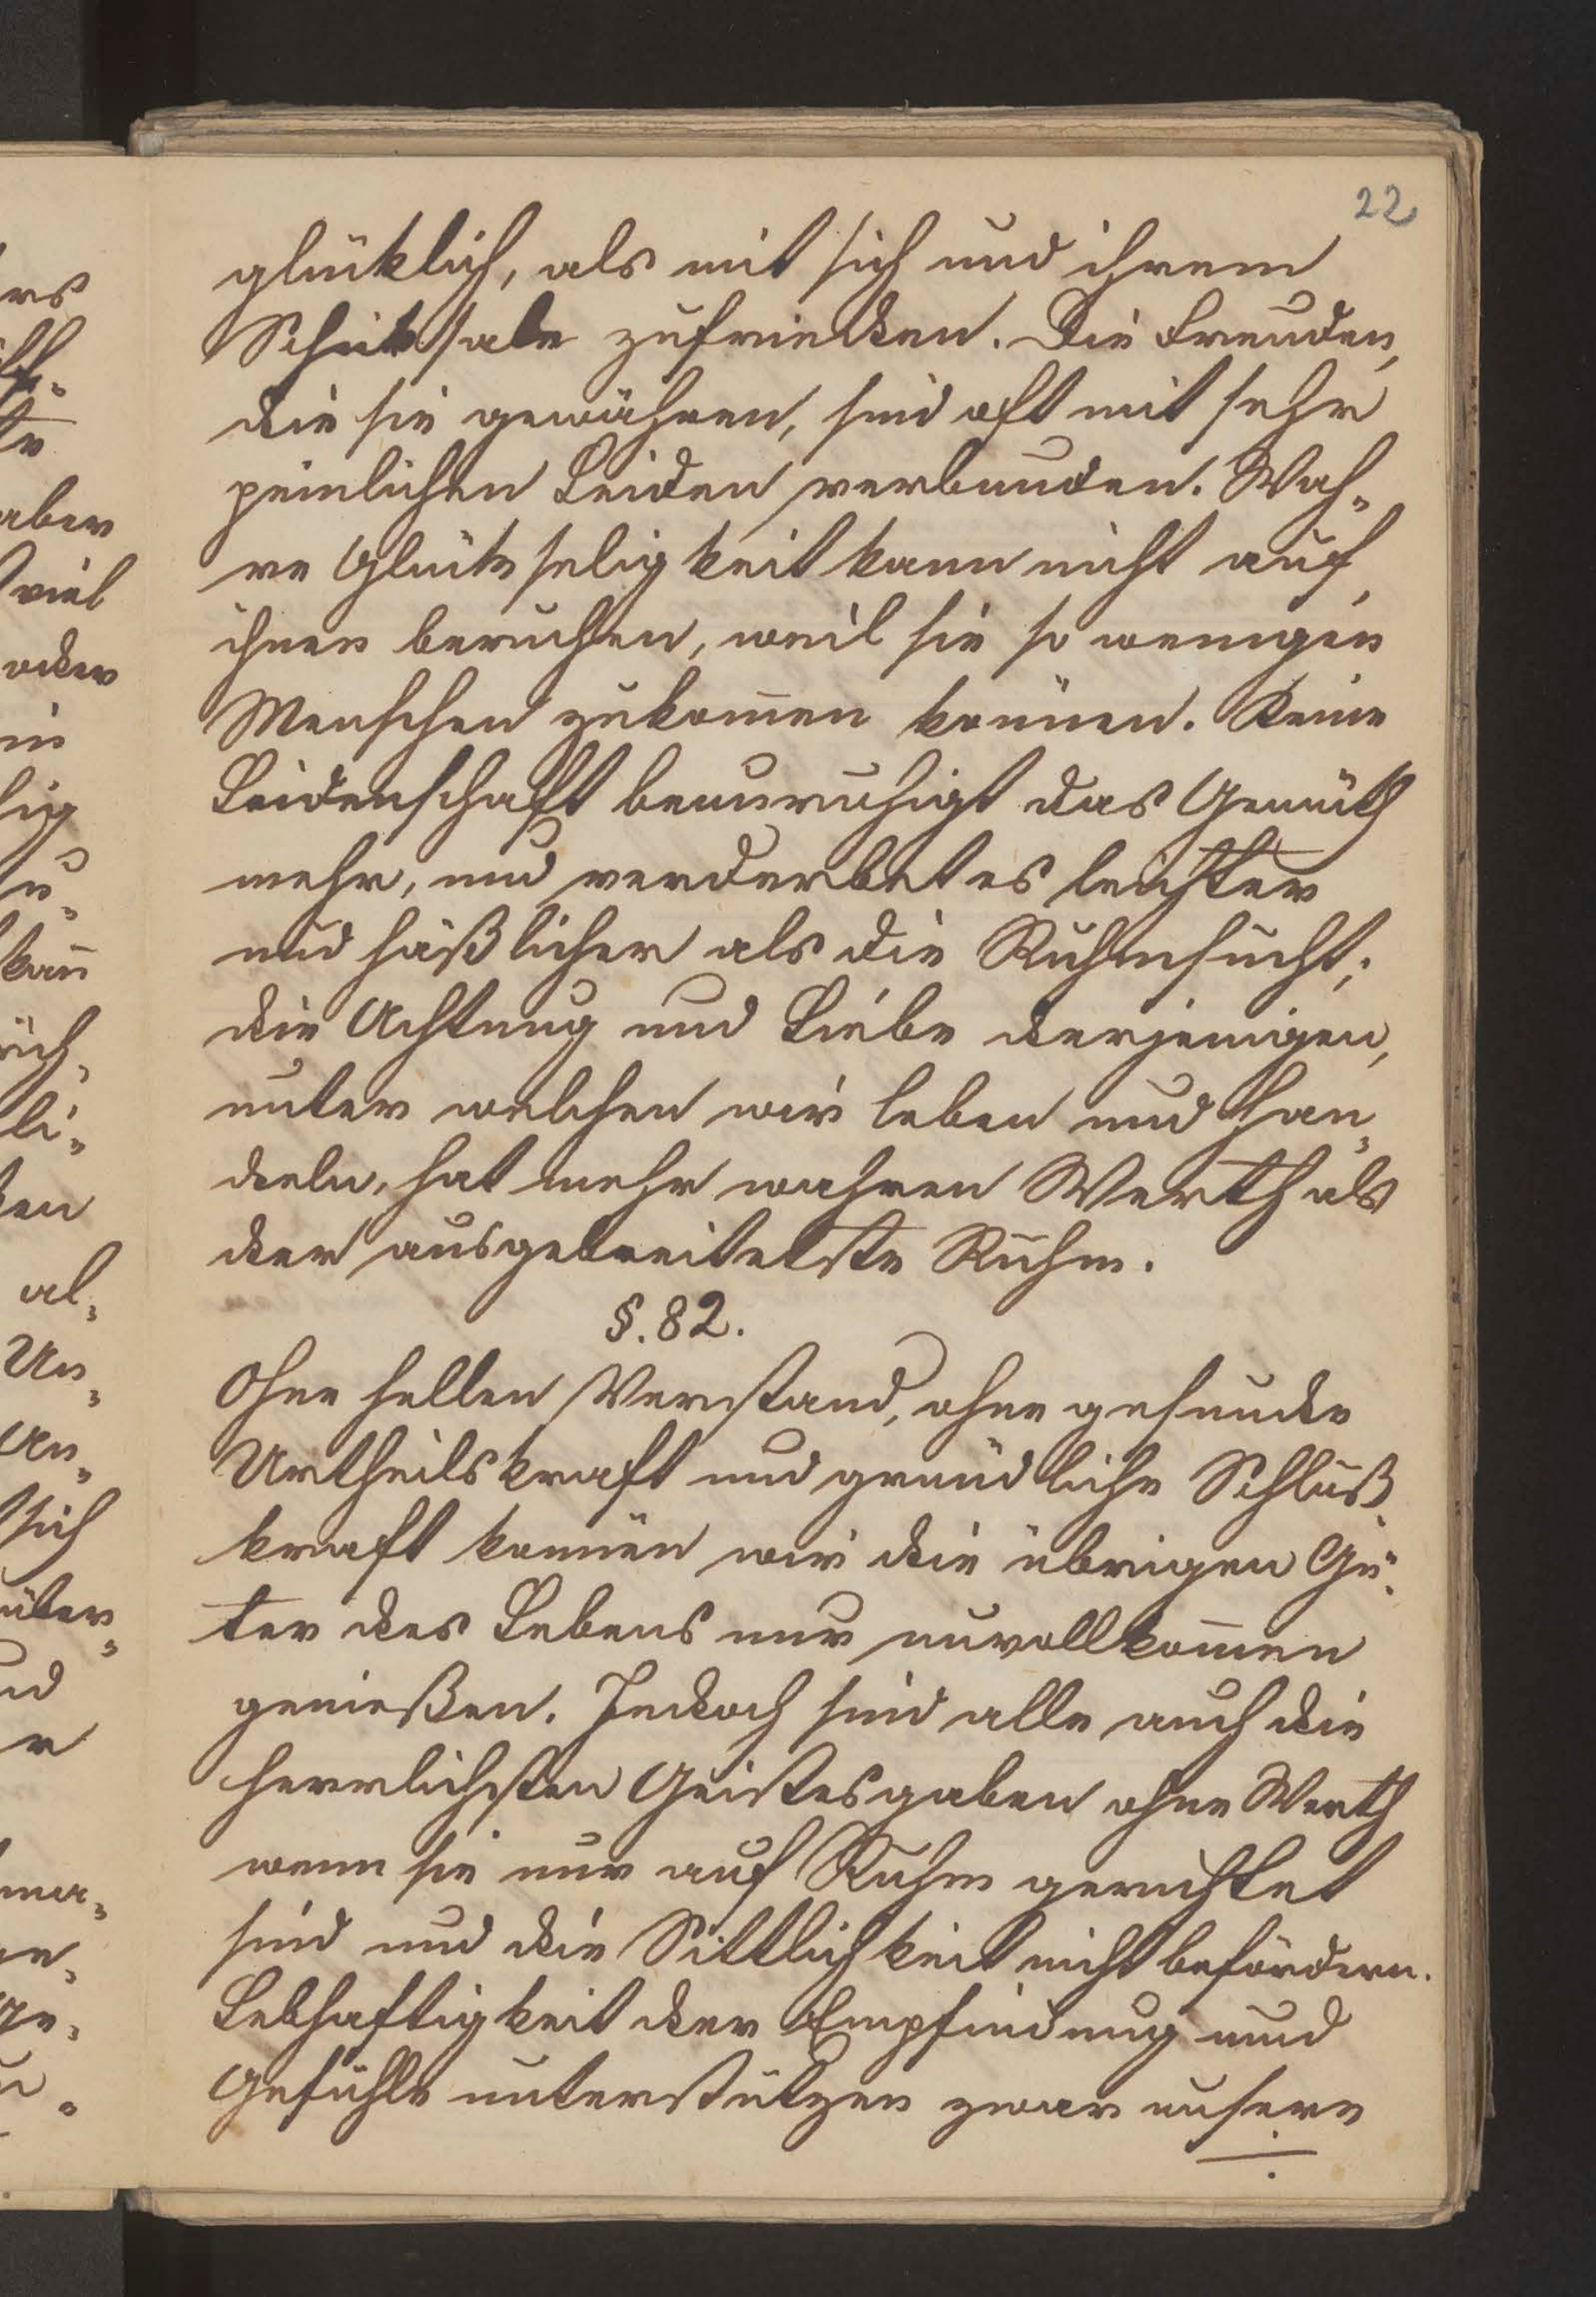 22
glücklich, als mit sich und ihrem
Schicksale zufrieden. Die Freuden,
die sie gewähren, sind oft mit sehr
peinlichen Leiden verbunden. Wah-
re Glückseligkeit kann nicht auf
ihnen beruhen, weil sie so wenigen
Menschen zukom̄en können. Keine
Leidenschaft beunruhigt das Gemüth
mehr, und verderbet es leichter
und häßlicher als die Ruhmsucht;
die Achtung und Liebe derjenigen,
unter welchen wir leben und han-
deln, hat mehr wahren Werth als
der ausgebreitetste Ruhm.
§. 82.
Ohne hellen Verstand, ohne gesunde
Urtheilskraft und gründliche Schluß-
kraft können wir die übrigen Gü-
ter des Lebens nur unvollkom̄en
genießen. Jedoch sind alle auch die
herrlichsten Geistesgaben ohne Werth
wenn sie nur auf Ruhm gerichtet
sind und die Sittlichkeit nicht befördern.
Lebhaftigkeit der Empfindung und
Gefühle unterstützen zwar unsere